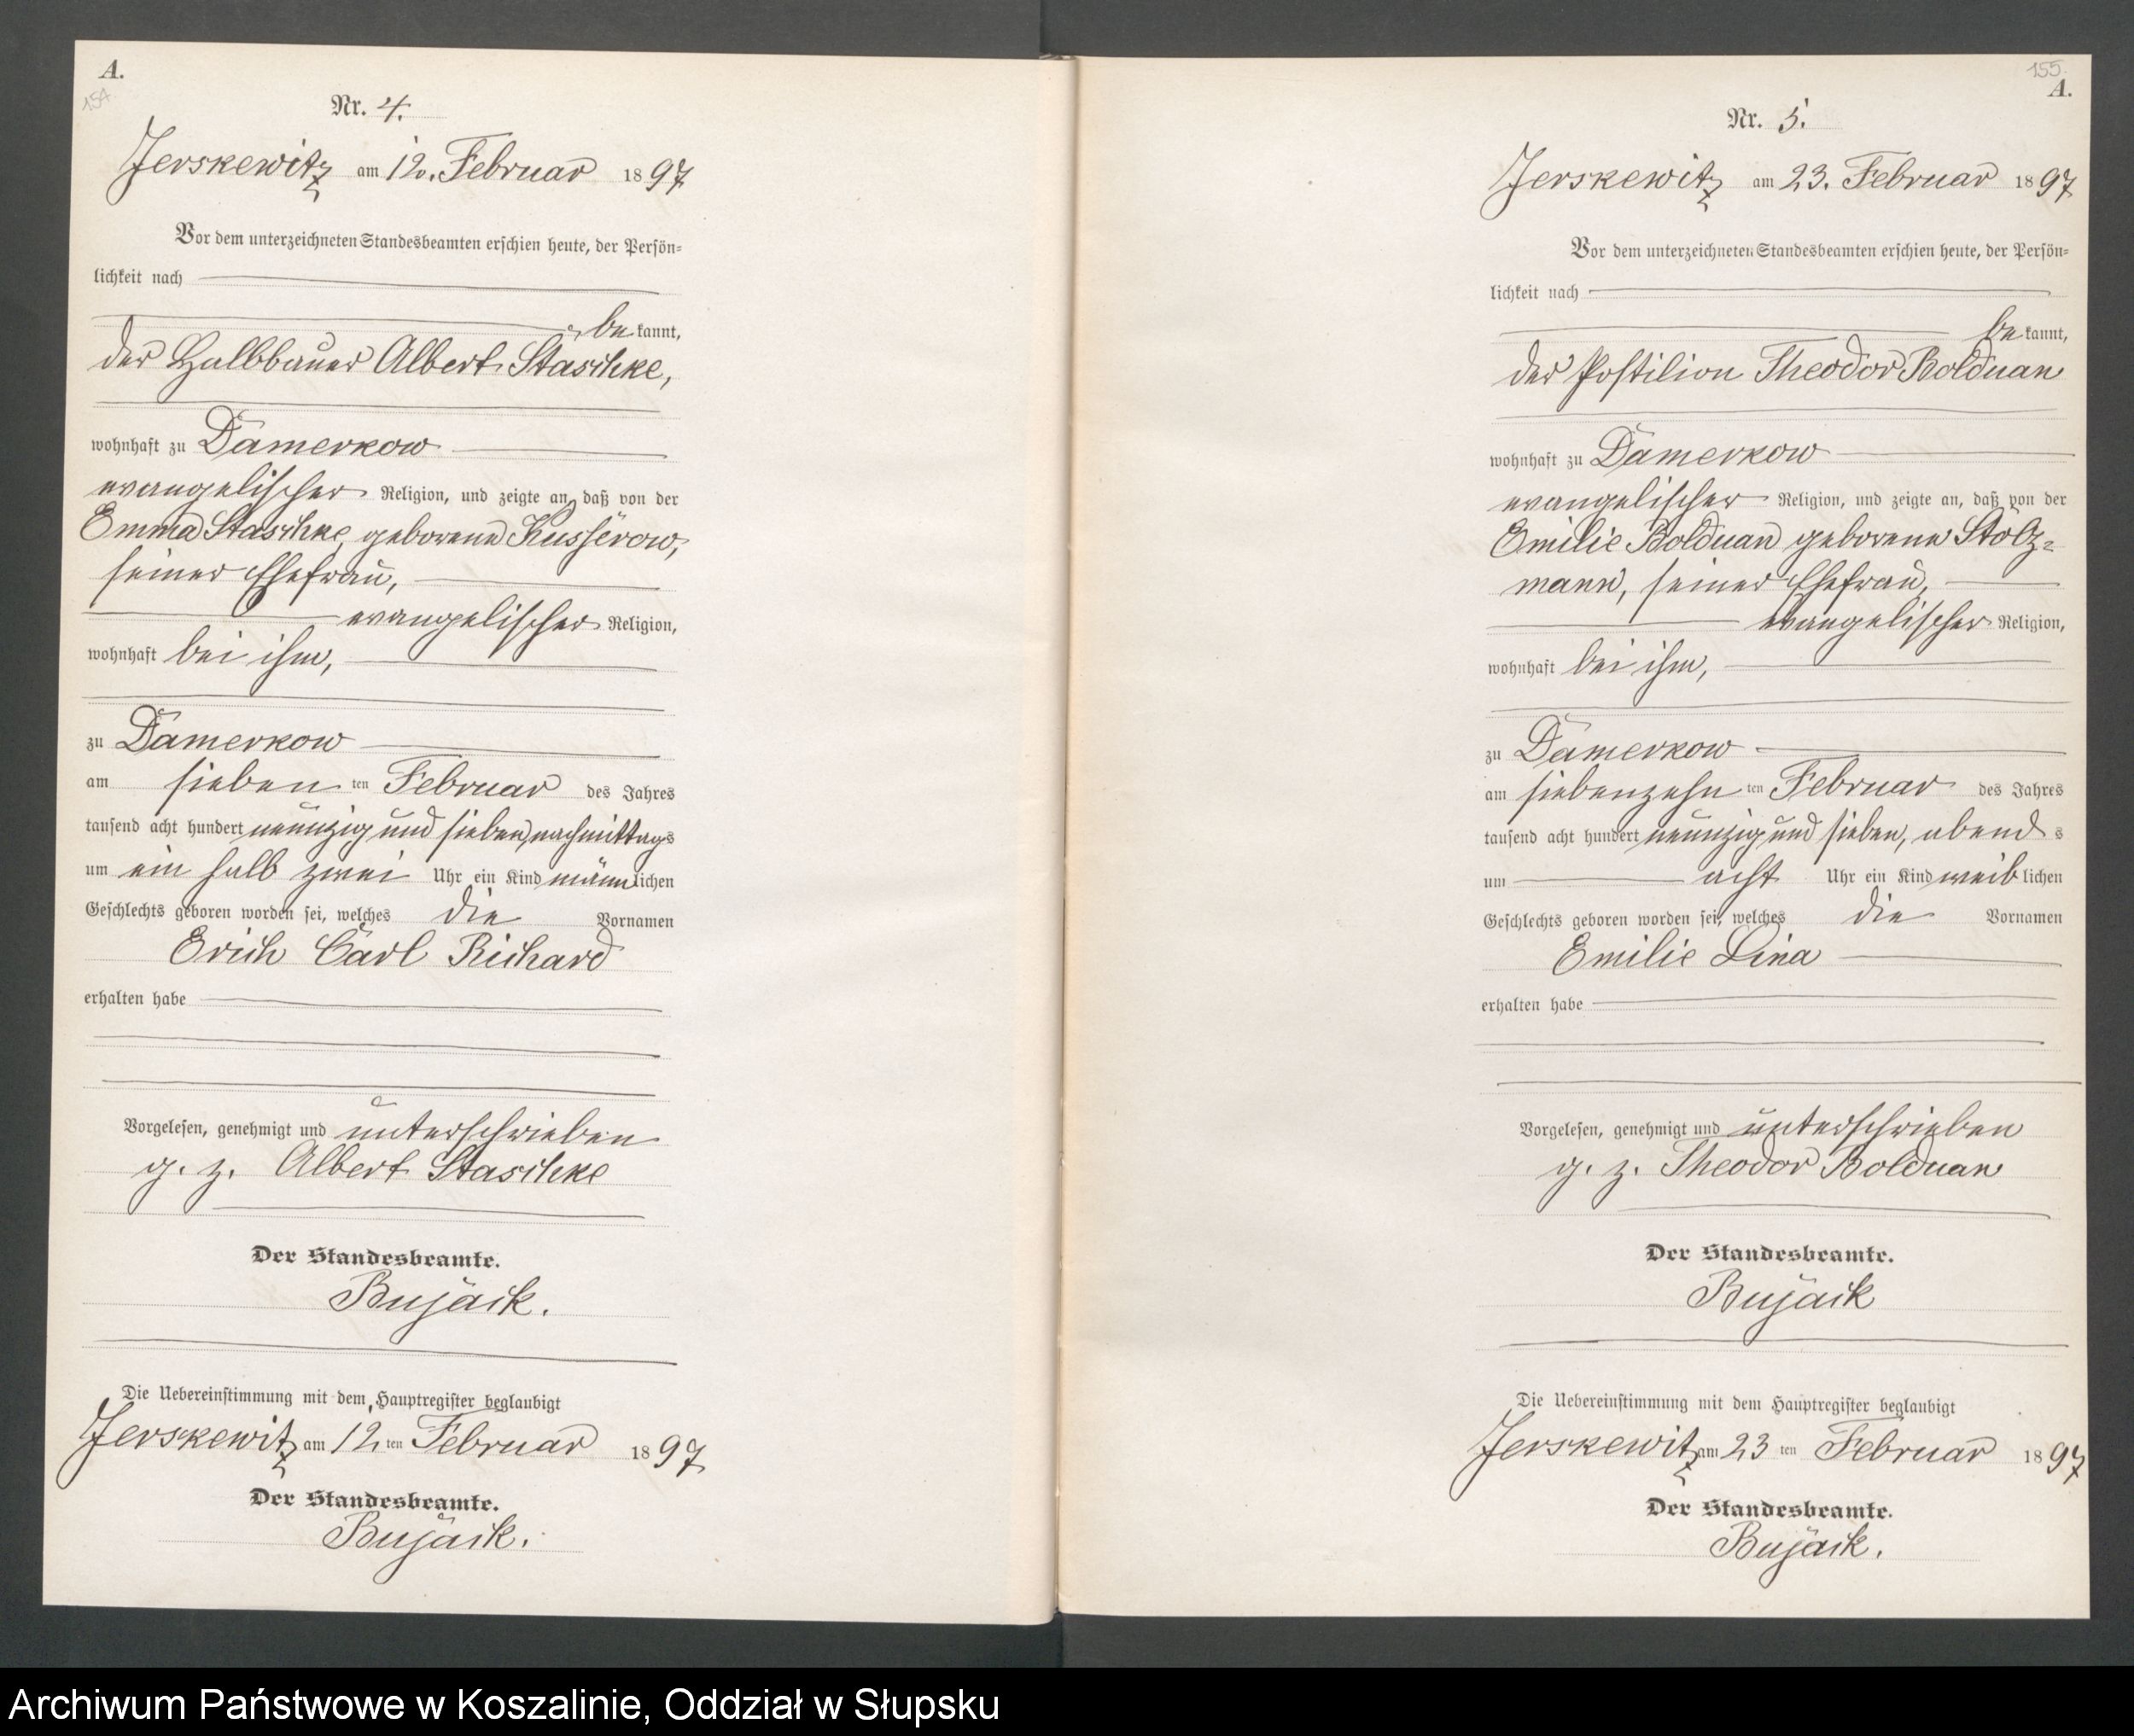 A.
154.
Nr. 4.
Jerskewitz am 12. Februar 1897
Vor dem unterzeichneten Standesbeamten erschien heute, der Persön-
lichkeit nach
bekannt,
der Halbbauer Albert Staschke,
wohnhaft zu Damerkow
evangelischer Religion, und zeigte an, daß von der
Emma Staschke, geborene Kusserow,
seiner Ehefrau,
evangelischer Religion,
wohnhaft bei ihm,
zu Damerkow
am siebenten Februar des Jahres
tausend acht hundert neunzig und sieben, nachmittags
um ein halb zwei Uhr ein Kind männlichen
Geschlechts geboren worden sei, welches die Vornamen
Erich Carl Richard
erhalten habe
Vorgelesen, genehmigt und unterschrieben
g. z. Albert Staschke
Der Standesbeamte.
Bujack.
Die Uebereinstimmung mit dem Hauptregister beglaubigt
Jerskewitz am 12ten Februar 1897
Der Standesbeamte.
Bujack.
155.
A.
Nr. 5.
Jerskewitz am 23. Februar 1897
Vor dem unterzeichneten Standesbeamten erschien heute, der Persön-
lichkeit nach
bekannt,
der Postilion Theodor Bolduan
wohnhaft zu Damerkow
evangelischer Religion, und zeigte an, daß von der
Emilie Bolduan geborene Stolz-
mann, seiner Ehefrau,
evangelischer Religion,
wohnhaft bei ihm,
zu Damerkow
am siebenzehnten Februar des Jahres
tausend acht hundert neunzig und sieben, abends
um acht Uhr ein Kind weiblichen
Geschlechts geboren worden sei, welches die Vornamen
Emilie Lina
erhalten habe
Vorgelesen, genehmigt und unterschrieben
g. z. Theodor Bolduan
Der Standesbeamte.
Bujack
Die Uebereinstimmung mit dem Hauptregister beglaubigt
Jerskewitz am 23ten Februar 1897
Der Standesbeamte.
Bujack.
Archiwum Państwowe w Koszalinie, Oddział w Słupsku